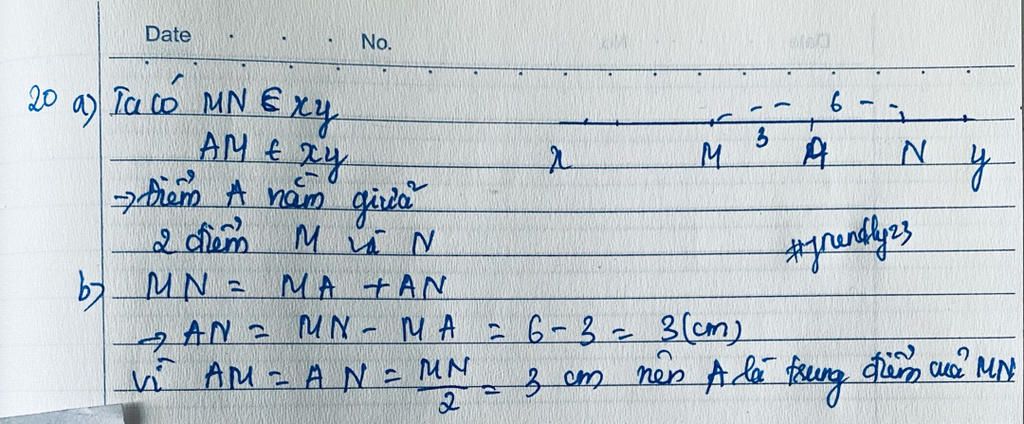 Date No.
20 a) Ta có MN ∈ xy
6
3
AM ∈ xy
x M A N y
→ Điểm A nằm giữa
2 điểm M và N
b) MN = MA + AN
→ AN = MN - MA = 6 - 3 = 3 (cm)
Vì AM = AN = MN/2 = 3 cm nên A là trung điểm của MN